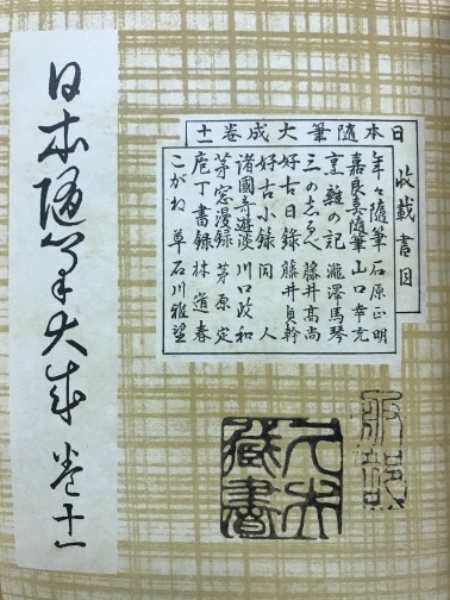 日本隨筆大成卷十一
收載書目
年々隨筆 石原正明
嘉良喜隨筆 山口幸充
烹雜の記 瀧澤馬琴
三のしるべ 藤井高尚
好古日錄 藤井貞幹
好古小錄 同人
諸國奇遊談 川口好和
茅窓漫録 茅原定
庖丁書録 林道春
こがね草 石川雅望
日本随筆大成 卷十一
服部
藏書